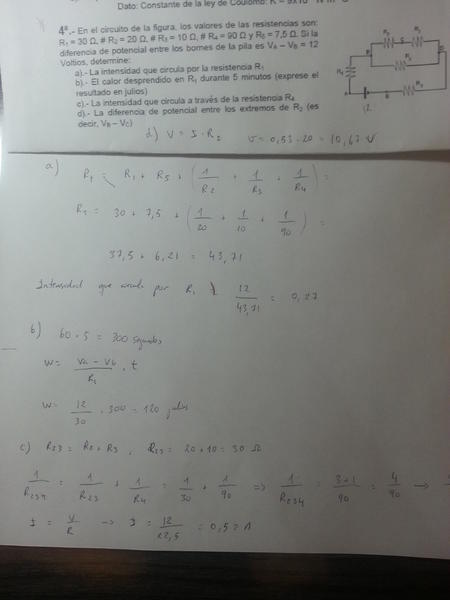 Dato: Constante de la ley de Coulomb: K = 9x10⁹ N m²
4ª.- En el circuito de la figura, los valores de las resistencias son:
R₁ = 30 Ω, # R₂ = 20 Ω, # R₃ = 10 Ω, # R₄ = 90 Ω y R₅ = 7,5 Ω. Si la
diferencia de potencial entre los bornes de la pila es VA – VB = 12
Voltios, determine:
a).- La intensidad que circula por la resistencia R₁
b).- El calor desprendido en R₁ durante 5 minutos (exprese el
resultado en julios)
c).- La intensidad que circula a través de la resistencia R₄
d).- La diferencia de potencial entre los extremos de R₂ (es
decir, VB – VC)
d) V = I · R₂    V = 0,53 · 20 = 10,67 V
a) R₁ = R₁ + R₅ + (1/R₂ + 1/R₃ + 1/R₄) =
R₁ = 30 + 7,5 + (1/20 + 1/10 + 1/90) =
37,5 + 6,21 = 43,71
Intensidad que circula por R₁ 12/43,71 = 0,27
b) 60 · 5 = 300 segundos
W = (Va - Vb)/R₁ · t
W = 12/30 · 300 = 120 julios
c) R₂₃ = R₂ + R₃ , R₂₃ = 20 + 10 = 30 Ω
1/R₂₃₄ = 1/R₂₃ + 1/R₄ = 1/30 + 1/90 => 1/R₂₃₄ = 3+1/90 = 4/90 →
I = V/R → I = 12/22,5 = 0,5